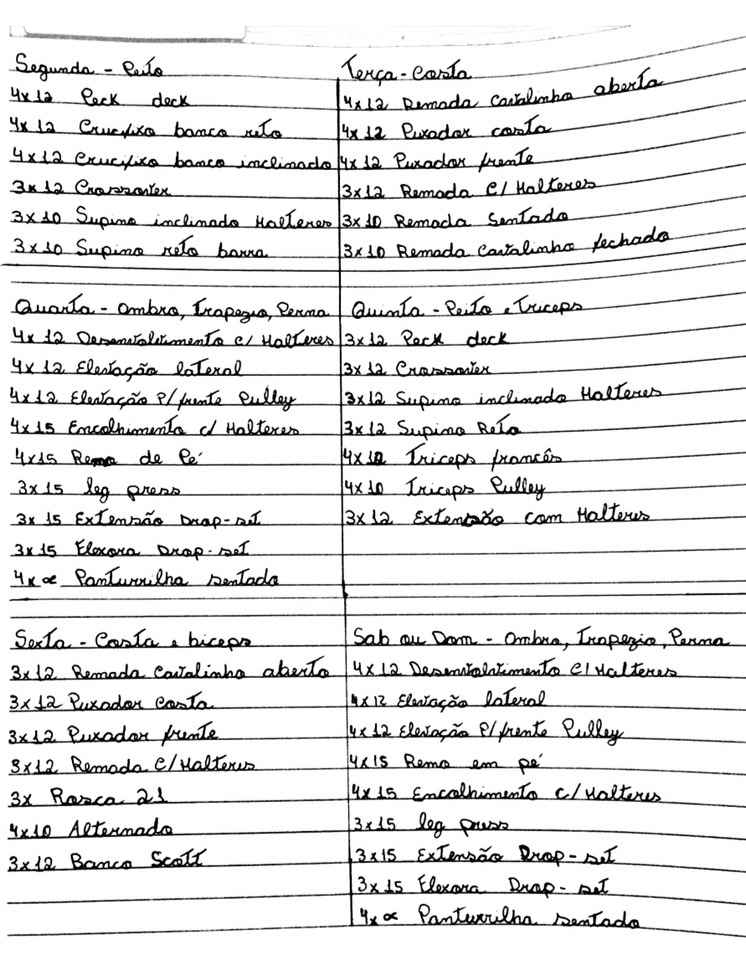 Segunda - Peito
4x12 Peck deck
4x12 Crucifixo banco reto
4x12 Crucifixo banco inclinado
3x12 Crossover
3x10 Supino inclinado Halteres
3x10 Supino reto barra
Terça - Costa
4x12 Remada Cavalinho aberta
4x12 Puxador costa
4x12 Puxador frente
3x12 Remada C/ Halteres
3x10 Remada Sentado
3x10 Remada Cavalinho fechado
Quarta - Ombro, Trapezio, Perna
4x12 Desenvolvimento c/ Halteres
4x12 Elevação lateral
4x12 Elevação P/ frente Pulley
4x15 Encolhimento c/ Halteres
4x15 Remo de Pé
3x15 leg press
3x15 Extensão Drop-set
3x15 Flexora Drop-set
4x ∝ Panturrilha sentado
Quinta - Peito e Triceps
3x12 Peck deck
3x12 Crossover
3x12 Supino inclinado Halteres
3x12 Supino Reto
4x10 Triceps francês
4x10 Triceps Pulley
3x12 Extensão com Halteres
Sexta - Costa e biceps
3x12 Remada Cavalinho aberto
3x12 Puxador Costa
3x12 Puxador frente
3x12 Remada C/ Halteres
3x Rosca 21
4x10 Alternado
3x12 Banco Scott
Sab ou Dom - Ombro, Trapezio, Perna
4x12 Desenvolvimento C/ Halteres
4x12 Elevação lateral
4x12 Elevação P/ frente Pulley
4x15 Remo em pé
4x15 Encolhimento c/ Halteres
3x15 leg press
3x15 Extensão Drop-set
3x15 Flexora Drop-set
4x ∝ Panturrilha sentado